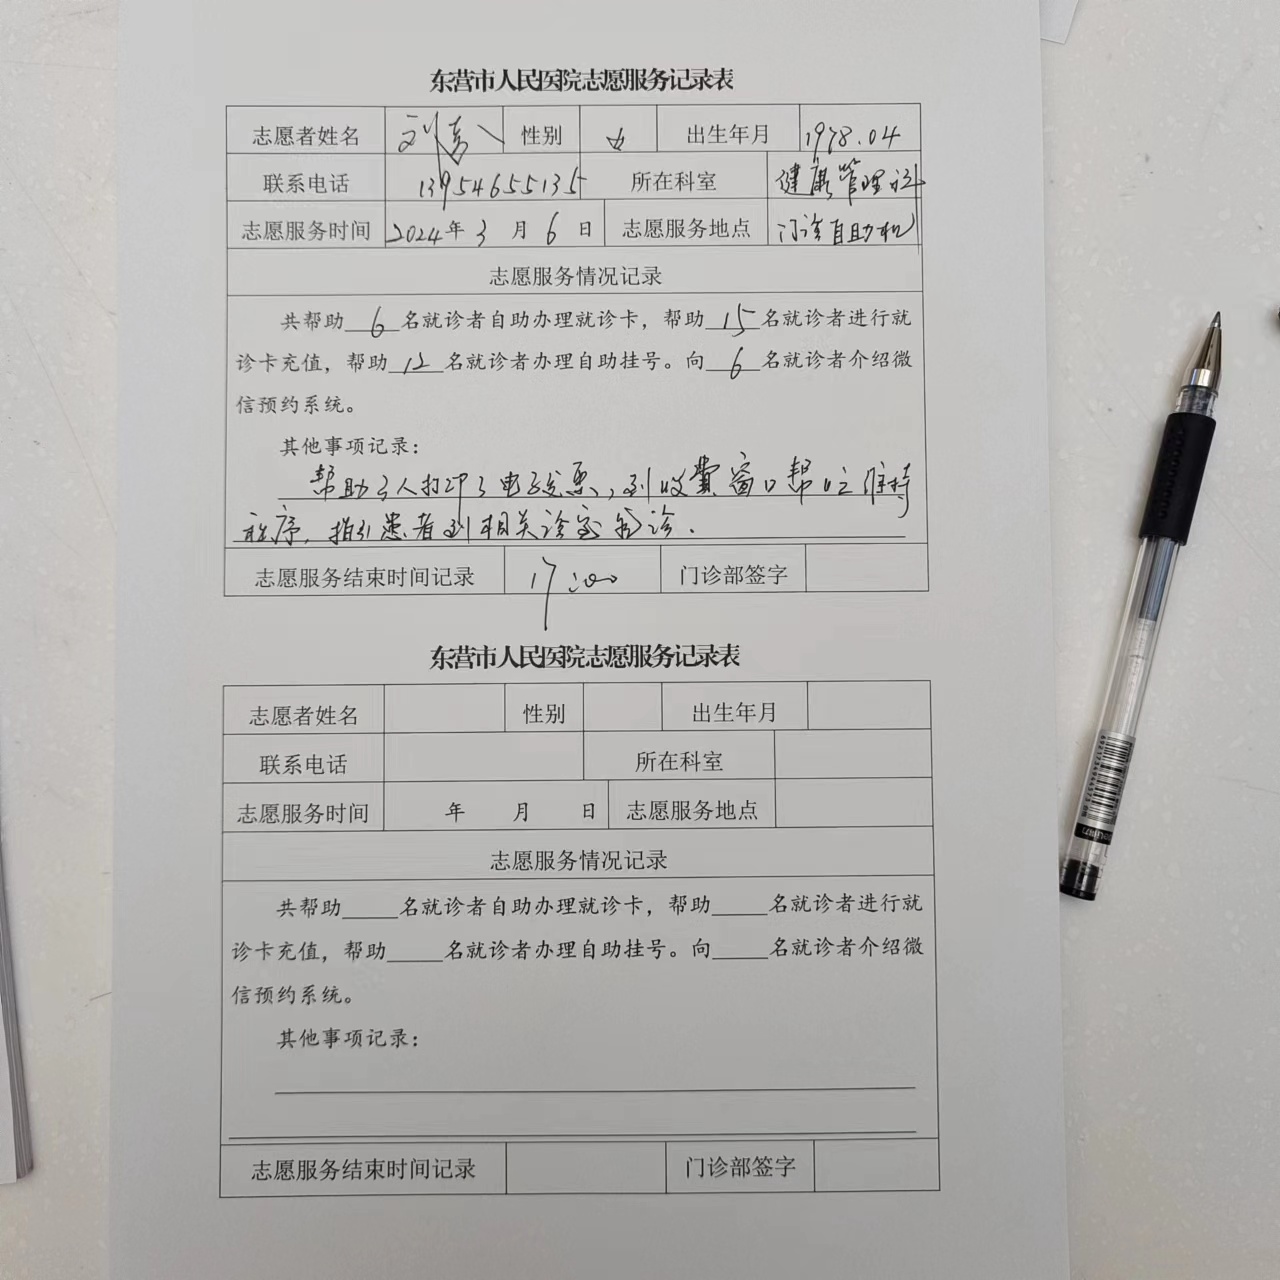 东营市人民医院志愿服务记录表
志愿者姓名 刘 性别 女 出生年月 1978.04
联系电话 13954655135 所在科室 健康管理科
志愿服务时间 2024年 3 月 6 日 志愿服务地点 门诊自助机
志愿服务情况记录
共帮助 6 名就诊者自助办理就诊卡，帮助 15 名就诊者进行就
诊卡充值，帮助 12 名就诊者办理自助挂号。向 6 名就诊者介绍微
信预约系统。
其他事项记录：
帮助了人打印了电子发票，到收费窗口帮忙维持
秩序，指引患者到相关诊室就诊.
志愿服务结束时间记录 17:00 门诊部签字
东营市人民医院志愿服务记录表
志愿者姓名 性别 出生年月
联系电话 所在科室
志愿服务时间 年 月 日 志愿服务地点
志愿服务情况记录
共帮助_____名就诊者自助办理就诊卡，帮助_____名就诊者进行就
诊卡充值，帮助_____名就诊者办理自助挂号。向_____名就诊者介绍微
信预约系统。
其他事项记录：
志愿服务结束时间记录 门诊部签字